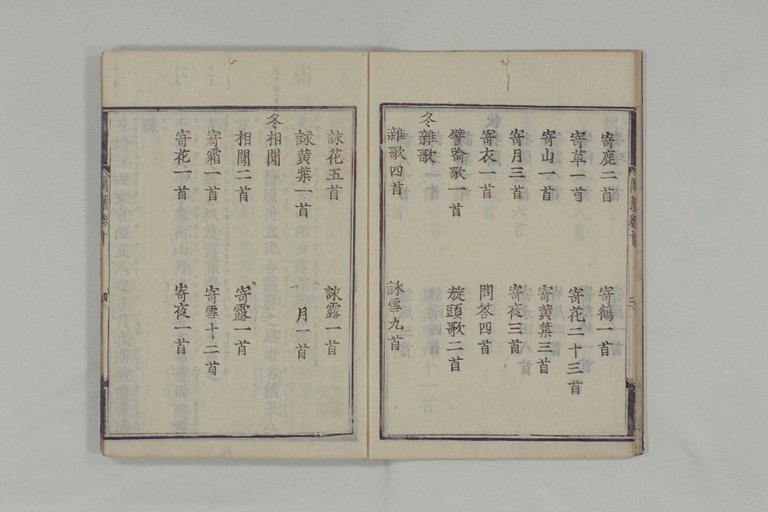 寄鹿二首 寄鶴一首
寄草一首 寄花二十三首
寄山一首 寄黄葉三首
寄月三首 寄夜三首
寄衣一首 問答四首
譬喩歌一首 旋頭歌二首
冬雜歌
雜歌四首 詠雪九首
詠花五首 詠露一首
詠黄葉一首 月一首
冬相聞
相聞二首 寄露一首
寄霜一首 寄雪十二首
寄花一首 寄夜一首